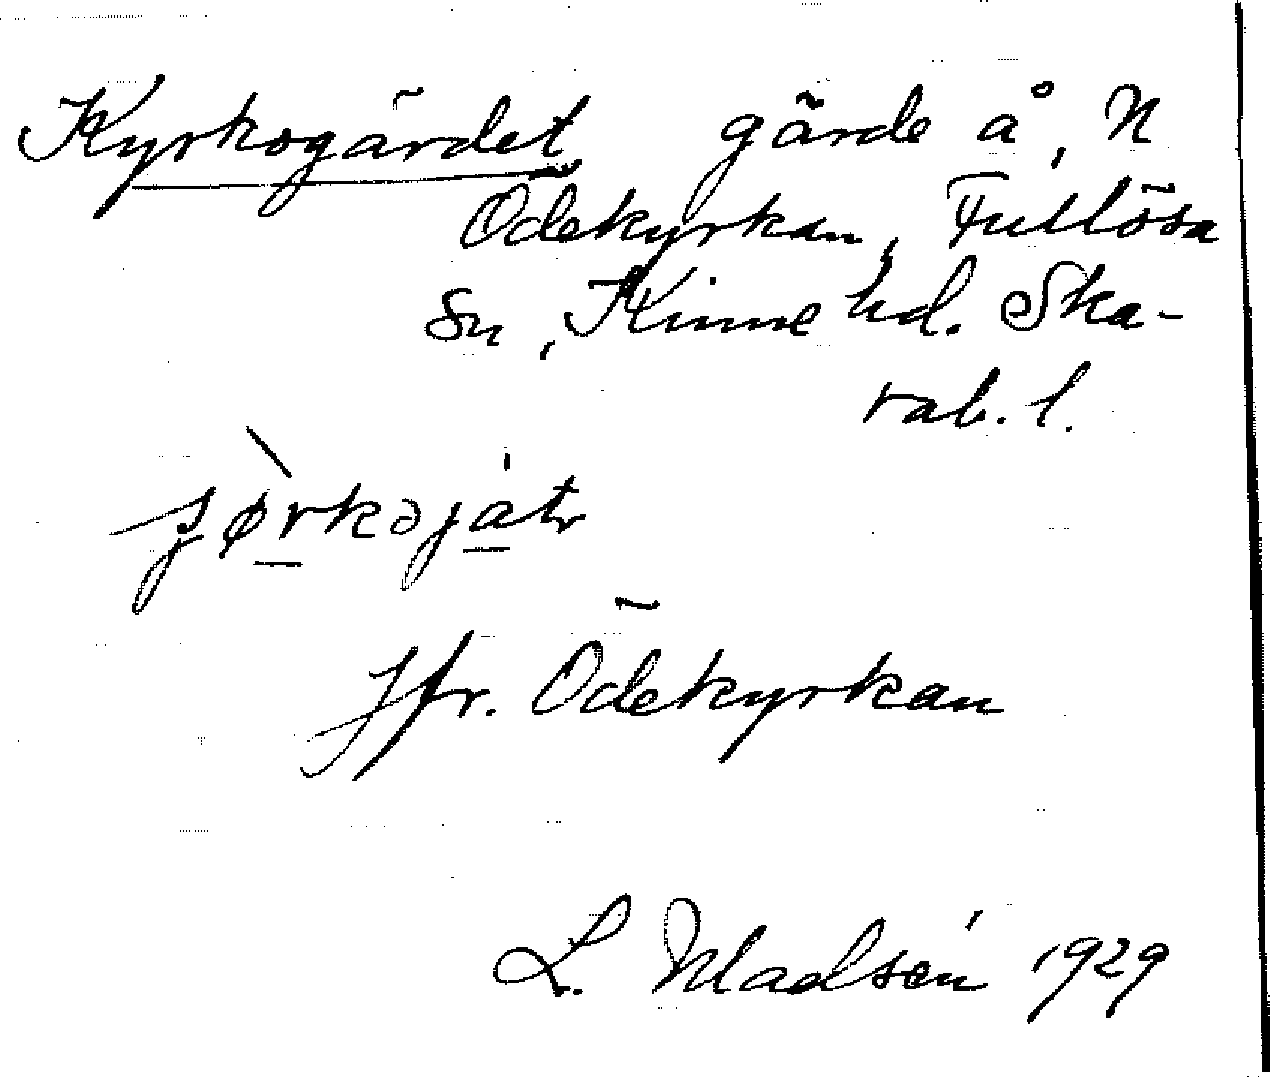 Kyrkogärdet gärde å, N
Ödekyrkan, Fullösa
Sn, Kinne hd. Ska-
rab. l.
Jfr. Ödekyrkan
L. Madsén 1929